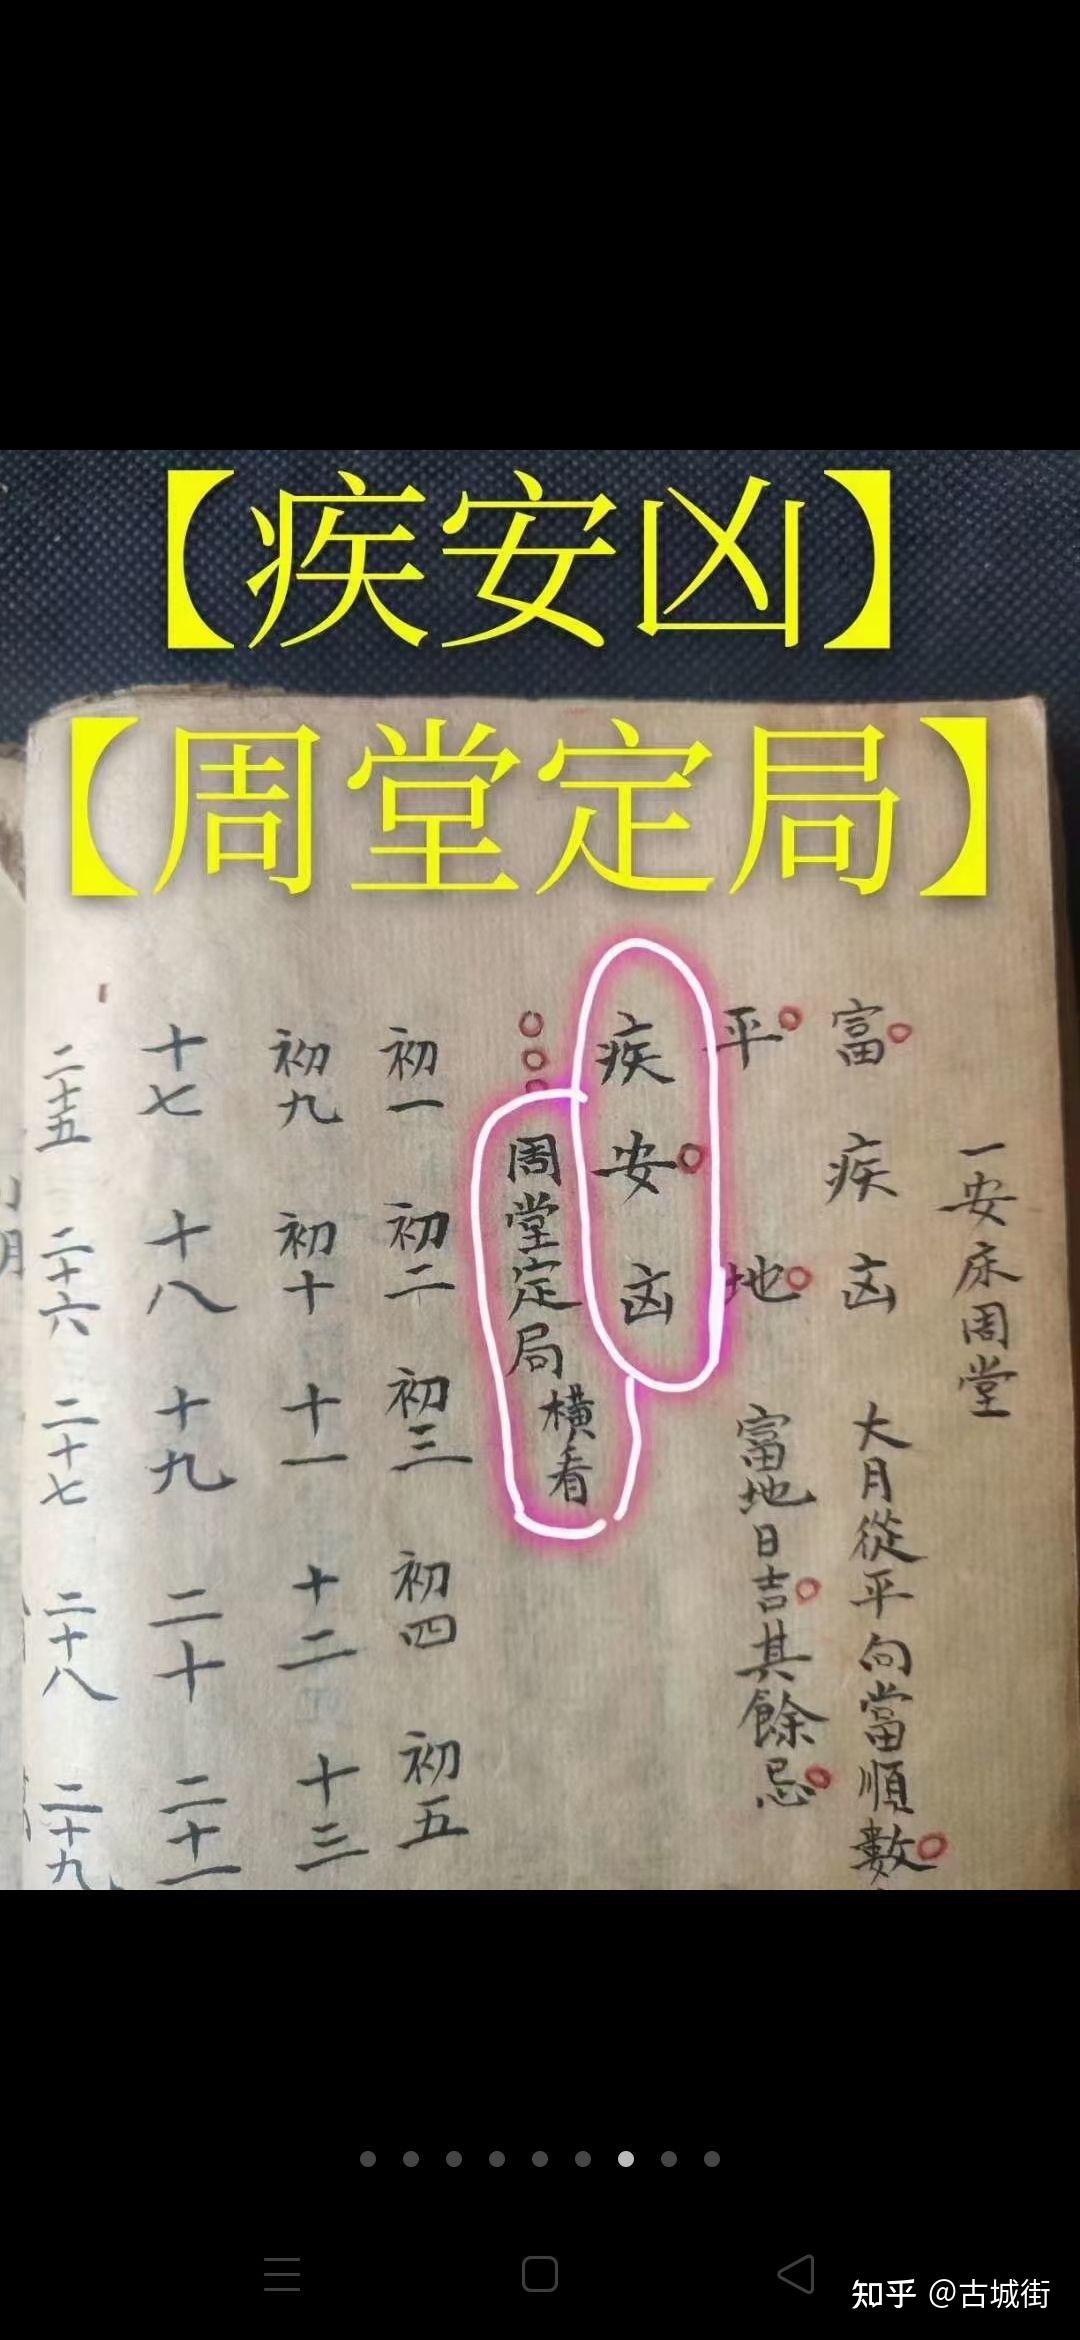 【疾安凶】
【周堂定局】
一安床周堂
富 疾 凶 大月從平向富順數
平 地 富地日吉其餘忌
疾 安 凶
周堂定局 橫看
初一 初二 初三 初四 初五
初九 初十 十一 十二 十三
十七 十八 十九 二十 二十一
二十五 二十六 二十七 二十八 二十九
知乎 @古城街